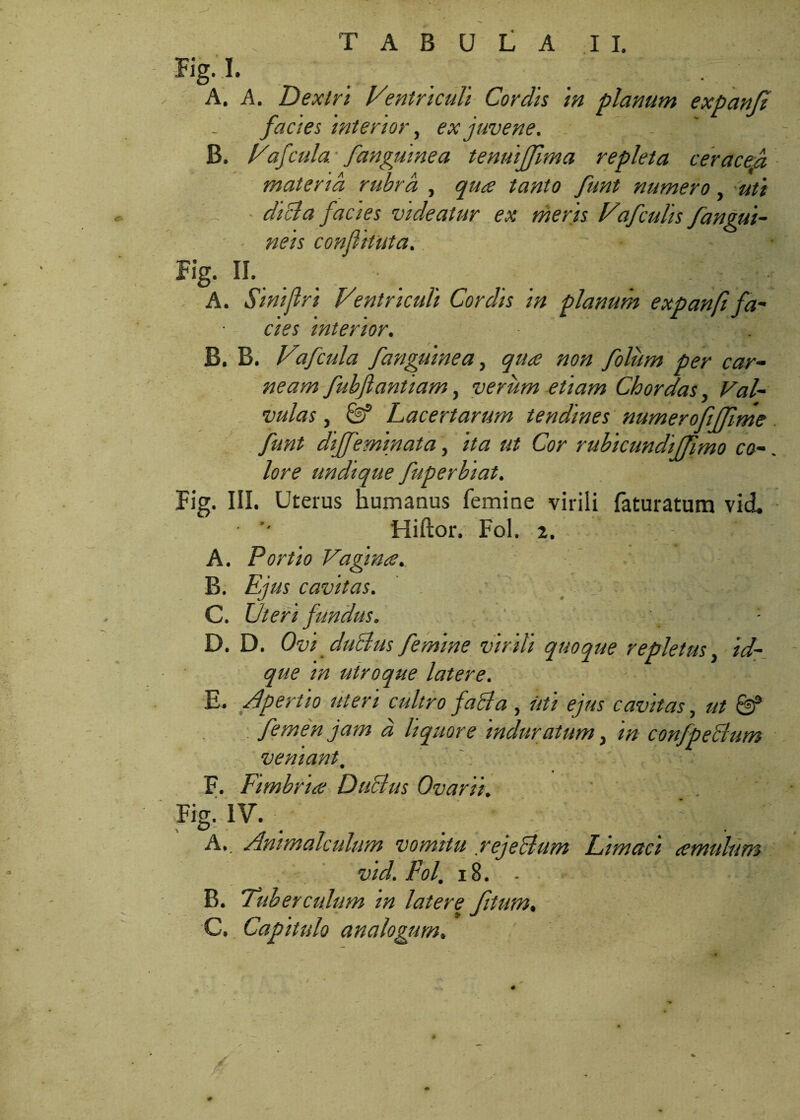 TABULA II.
Fig. I.
A. A. Dextri Ventriculi Cordis in planum expanſi
facies interior, ex juvene.
B. Vaſcula ſanguinea tenuiſſima repleta ceraceâ
materiâ rubrâ, quæ tanto ſunt numero, uti
dicta facies videatur ex meris Vaſculis ſangui-
neis conſtituta.
Fig. II.
A. Siniſtri Ventriculi Cordis in planum expanſi fa-
cies interior.
B. B. Vaſcula ſanguinea, quæ non ſolùm per car-
neam ſubſtantiam, verùm etiam Chordas, Val-
vulas, & Lacertarum tendines numeroſiſſime
ſunt diſſeminata, ita ut Cor rubicundiſſimo co-
lore undique ſuperbiat.
Fig. III. Uterus humanus ſemine virili ſaturatum vid.
Hiſtor. Fol. 2.
A. Portio Vaginæ.
B. Ejus cavitas.
C. Uteri fundus.
D. D. Ovi ductus ſemine virili quoque repletus, id-
que in utroque latere.
E. Apertio uteri cultro facta, uti ejus cavitas, ut &
ſemen jam à liquore induratum, in conſpectum
veniant.
F. Fimbriæ Ductus Ovarii.
Fig. IV.
A. Animalculum vomitu rejectum Limaci æmulum
vid. Fol. 18.
B. Tuberculum in latere ſitum.
C. Capitulo analogum.